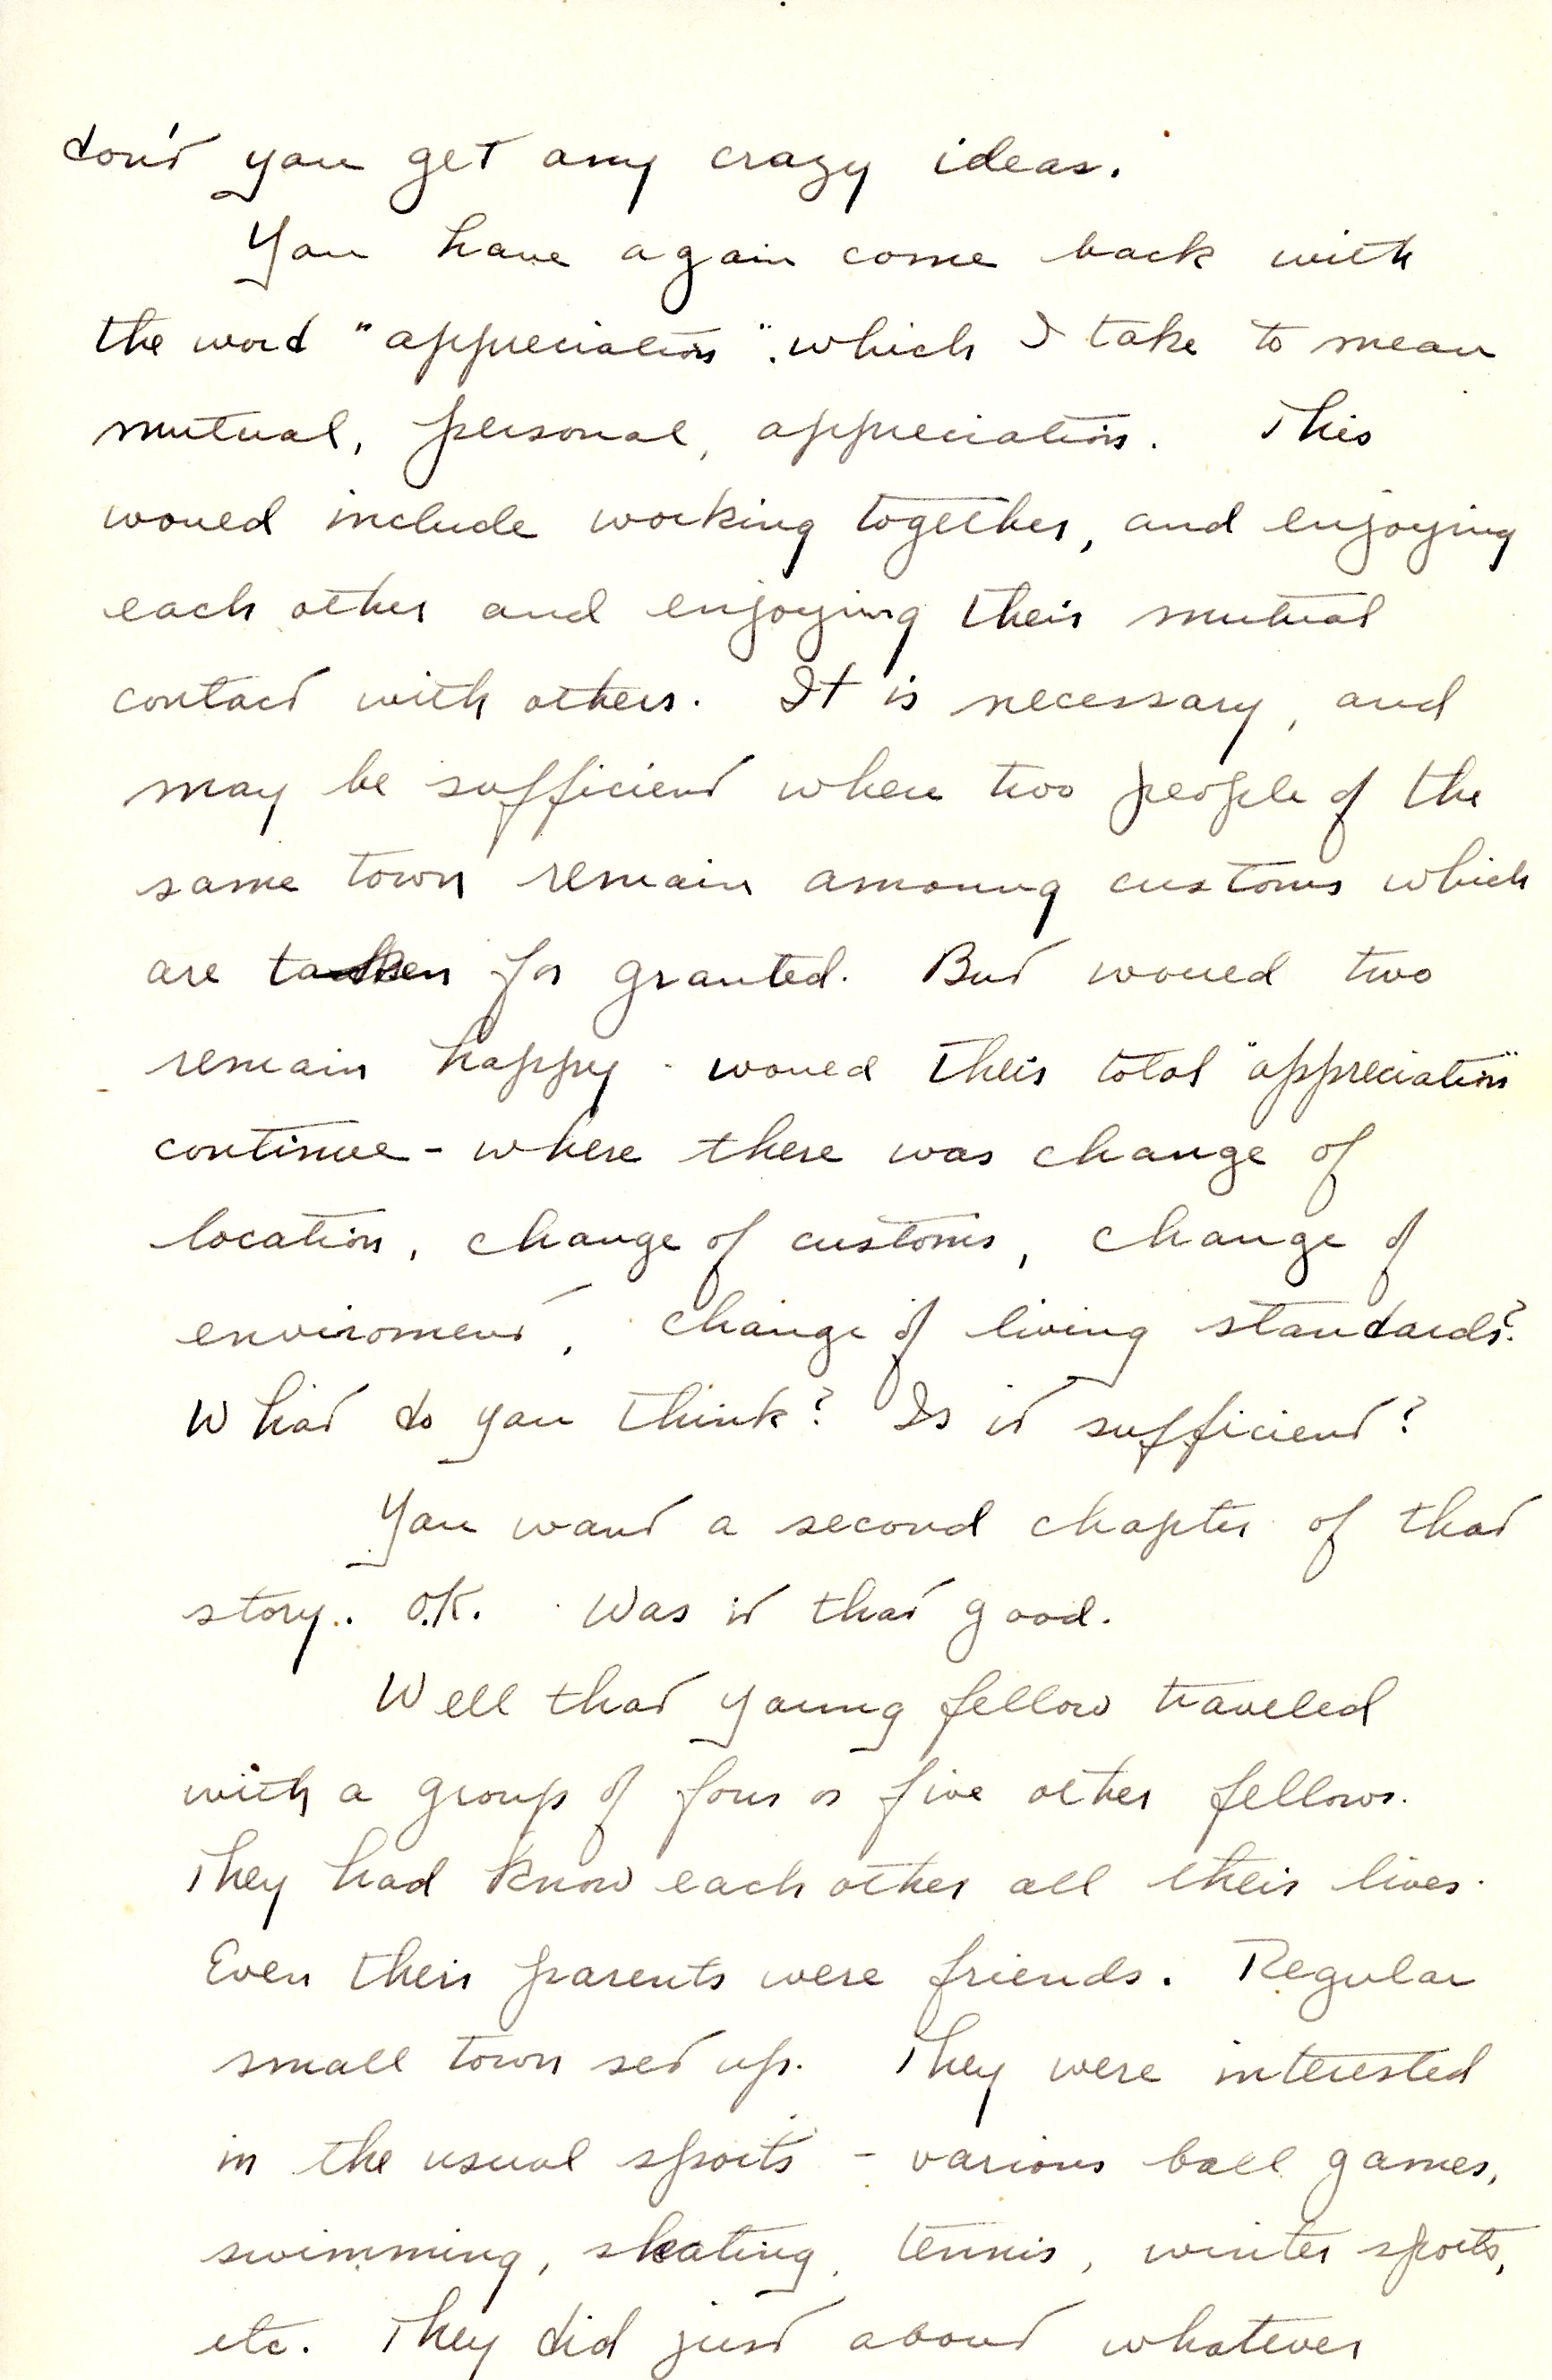 don't you get any crazy ideas.
You have again come back with
the word "appreciation". which I take to mean
mutual, personal, appreciation. This
would include working together, and enjoying
each other and enjoying their mutual
contact with others. It is necessary, and
may be sufficient when two people of the
same town remain among customs which
are taken for granted. But would two
remain happy - would their total "appreciation"
continue - where there was change of
location, change of customs, change of
enviroment, change of living standards?
What do you think? Is it sufficient?
You want a second chapter of that
story. O.K. Was it that good.
Well that young fellow traveled
with a group of four or five other fellows.
They had know each other all their lives.
Even their parents were friends. Regular
small town set up. They were interested
in the usual sports - various ball games,
swimming, skating, tennis, winter sports,
etc. They did just about whatever